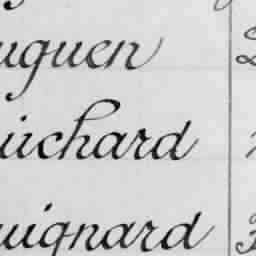 uguen
uichard
uignard